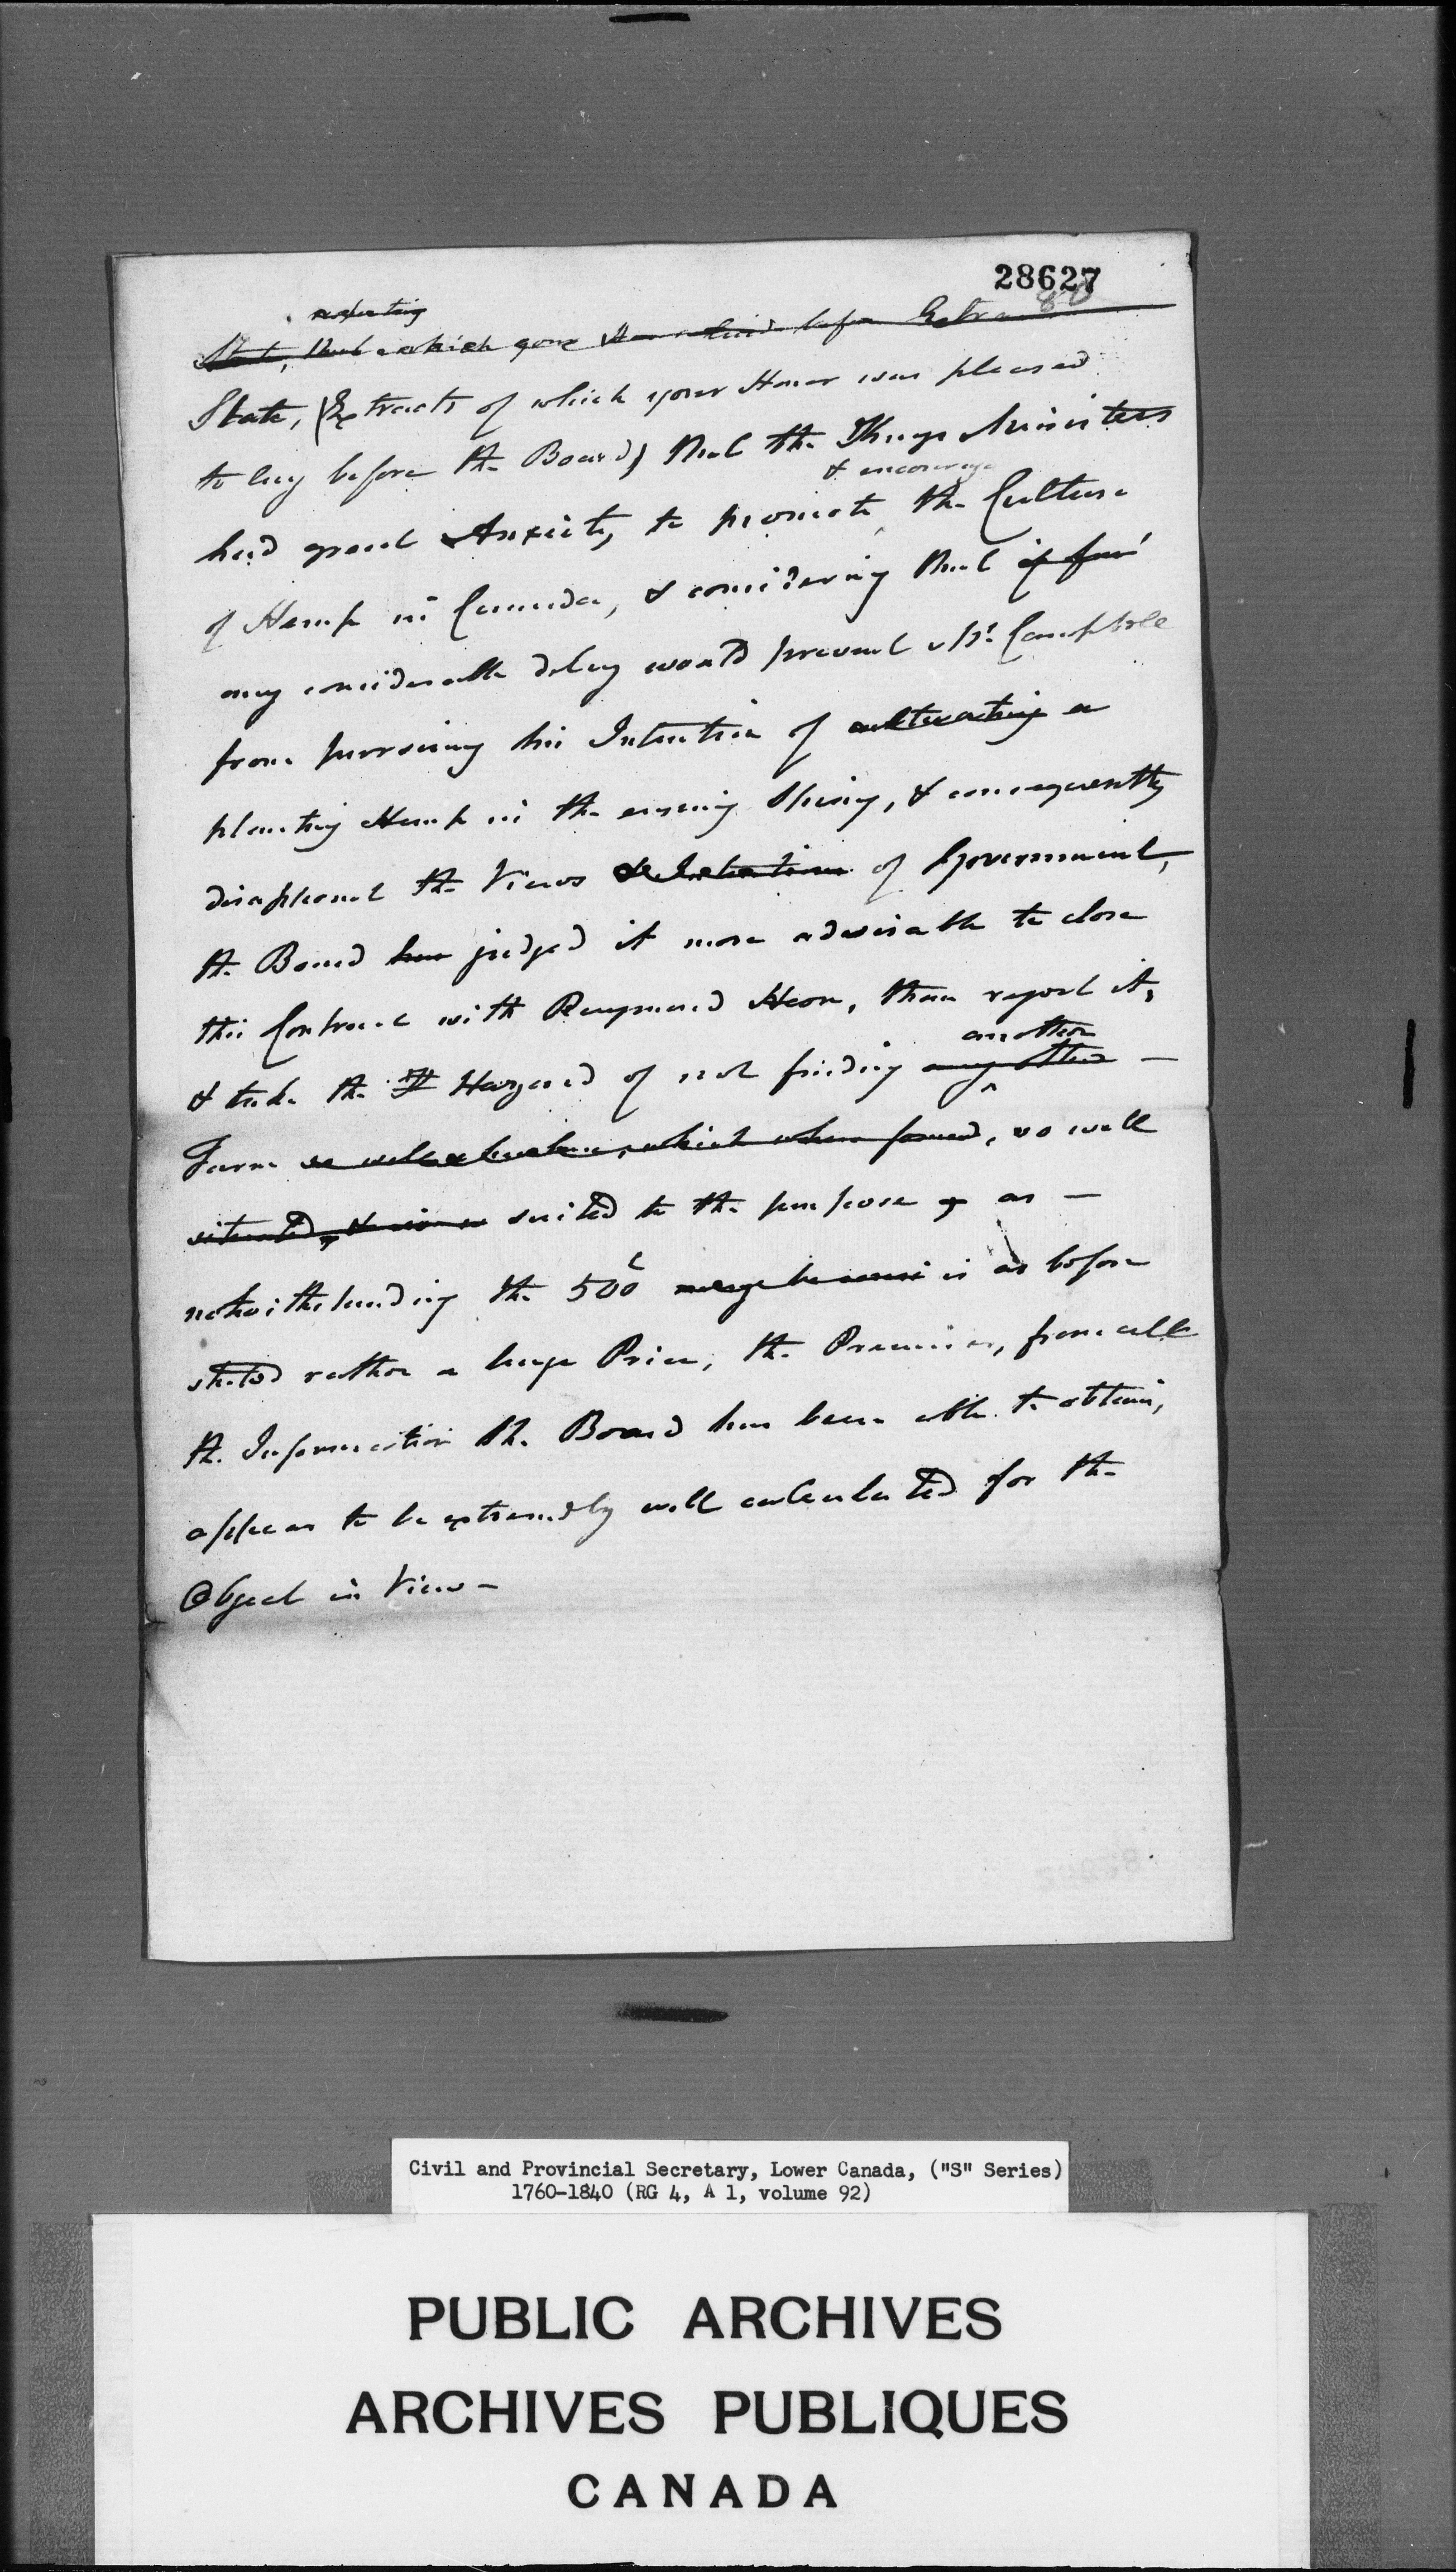 28627
80
respecting
State, that which your Honor laid before Extra
State, (Extracts of which your Honor was pleased
to lay before the Board) that the Kings Ministers
& encourage
had great Anxiety to promote the Culture
of Hemp in Canada, & considering that if
any considerable delay would prevent Mr. Campbell
from pursuing his Intention of cultivating a
planting Hemp in the ensuing Spring, & consequently
disappoint the Views & Intentions of Government,
the Board has judged it more adviseable to close
this Contract with Raymond Heon, than reject it,
another
& take the H Hazard of not finding any other —
Farm so which when found, so well
situated, & suited to the purpose & as —
notwithstanding the 500£ may be is as before
stated rather a large Price, the Premises, from all
the Information the Board has been able to obtain,
appear to be extremely well calculated for the
Object in View —
Civil and Provincial Secretary, Lower Canada, ("S" Series)
1760-1840 (RG 4, A 1, volume 92)
PUBLIC ARCHIVES
ARCHIVES PUBLIQUES
CANADA